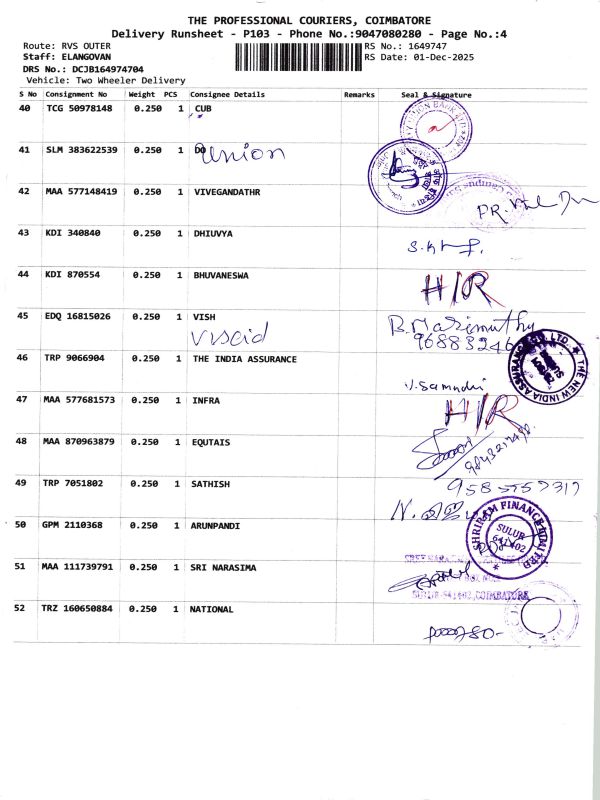 THE PROFESSIONAL COURIERS, COIMBATORE
Delivery Runsheet - P103 - Phone No.:9047080280 - Page No.:4
Route: RVS OUTER RS No.: 1649747
Staff: ELANGOVAN RS Date: 01-Dec-2025
DRS No.: DCJB164974704
Vehicle: Two Wheeler Delivery
S No Consignment No Weight PCS Consignee Details Remarks Seal & Signature
40 TCG 50978148 0.250 1 CUB
41 SLM 383622539 0.250 1 DO union
42 MAA 577148419 0.250 1 VIVEGANDATHR
43 KDI 340840 0.250 1 DHIUVYA
44 KDI 870554 0.250 1 BHUVANESWA H/R
45 EDQ 16815026 0.250 1 VISH B. Marimuthu
96883246
46 TRP 9066904 0.250 1 THE INDIA ASSURANCE THE NEW INDIA ASSURANCE CO. LTD.
47 MAA 577681573 0.250 1 INFRA H/R
48 MAA 870963879 0.250 1 EQUTAIS
49 TRP 7051802 0.250 1 SATHISH 9585757317
50 GPM 2110368 0.250 1 ARUNPANDI SHRIRAM FINANCE LTD
SULUR
641402
51 MAA 111739791 0.250 1 SRI NARASIMA
SULUR-641402, COIMBATORE
52 TRZ 160650884 0.250 1 NATIONAL